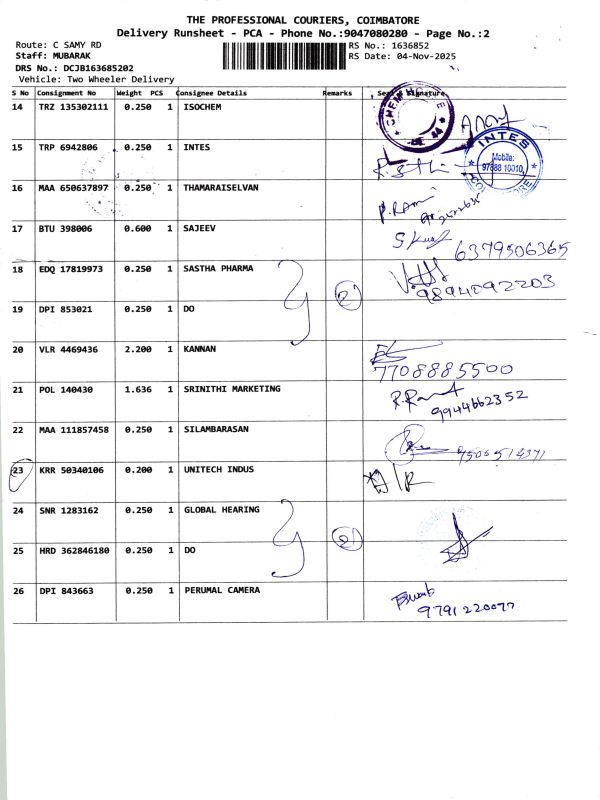 THE PROFESSIONAL COURIERS, COIMBATORE
Delivery Runsheet - PCA - Phone No.:9047080280 - Page No.:2
Route: C SAMY RD RS No.: 1636852
Staff: MUBARAK RS Date: 04-Nov-2025
DRS No.: DCJB163685202
Vehicle: Two Wheeler Delivery
S No Consignment No Weight PCS Consignee Details Remarks Signature
14 TRZ 135302111 0.250 1 ISOCHEM
15 TRP 6942806 0.250 1 INTES
INTES
Mobile:
97888 10010
16 MAA 650637897 0.250 1 THAMARAISELVAN
P. Ram
17 BTU 398006 0.600 1 SAJEEV
6379506365
18 EDQ 17819973 0.250 1 SASTHA PHARMA 2
9894092203
19 DPI 853021 0.250 1 DO
20 VLR 4469436 2.200 1 KANNAN
7708885500
21 POL 140430 1.636 1 SRINITHI MARKETING
9944662352
22 MAA 111857458 0.250 1 SILAMBARASAN
23 KRR 50340106 0.200 1 UNITECH INDUS
24 SNR 1283162 0.250 1 GLOBAL HEARING 2
25 HRD 362846180 0.250 1 DO
26 DPI 843663 0.250 1 PERUMAL CAMERA
9791220077